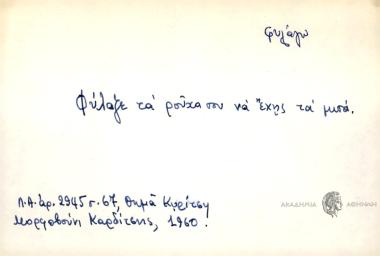 φυλάγω
Φύλαξε τά ροῦχα σου νά ἔχῃς τά μισά.
Λ.Α. ἀρ. 2945 σ. 67, Θωμᾶ Κυρίτση
Μορφοβούνι Καρδίτσης, 1960.
ΑΚΑΔΗΜΙΑ ΑΘΗΝΩΝ